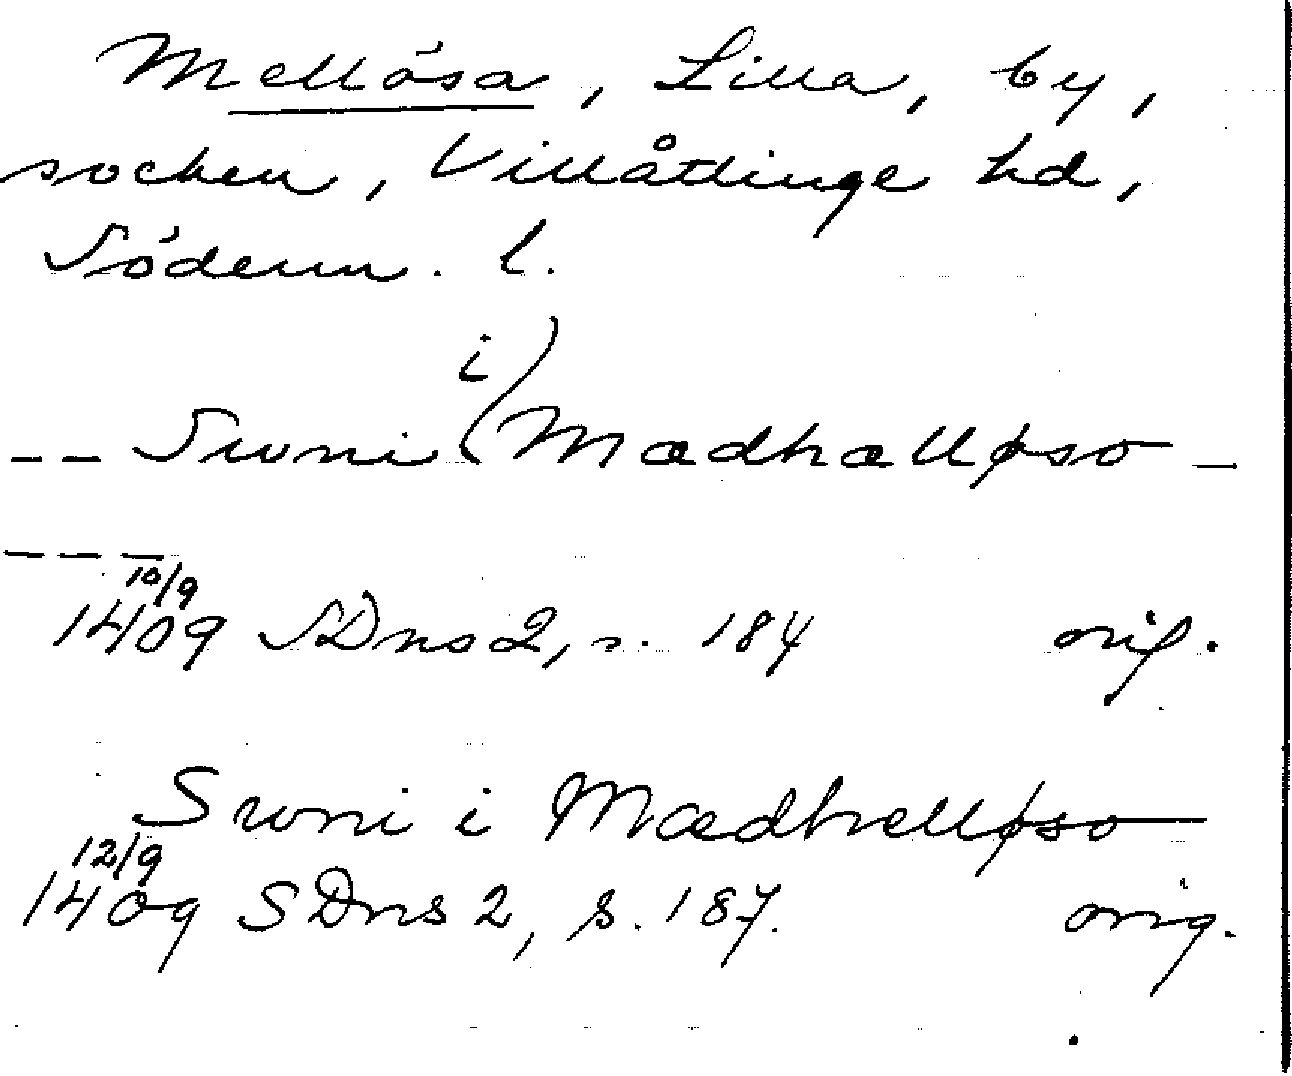 Mellösa, Lilla, by,
socken, Villåttinge hd,
Söderm. l.
-- Swni i) Mædhælløso -
---
10/9
1409 SDns 2, s. 184 orig.
Swni i Mædhelløso
12/9
1409 SDns 2, s. 187. orig.